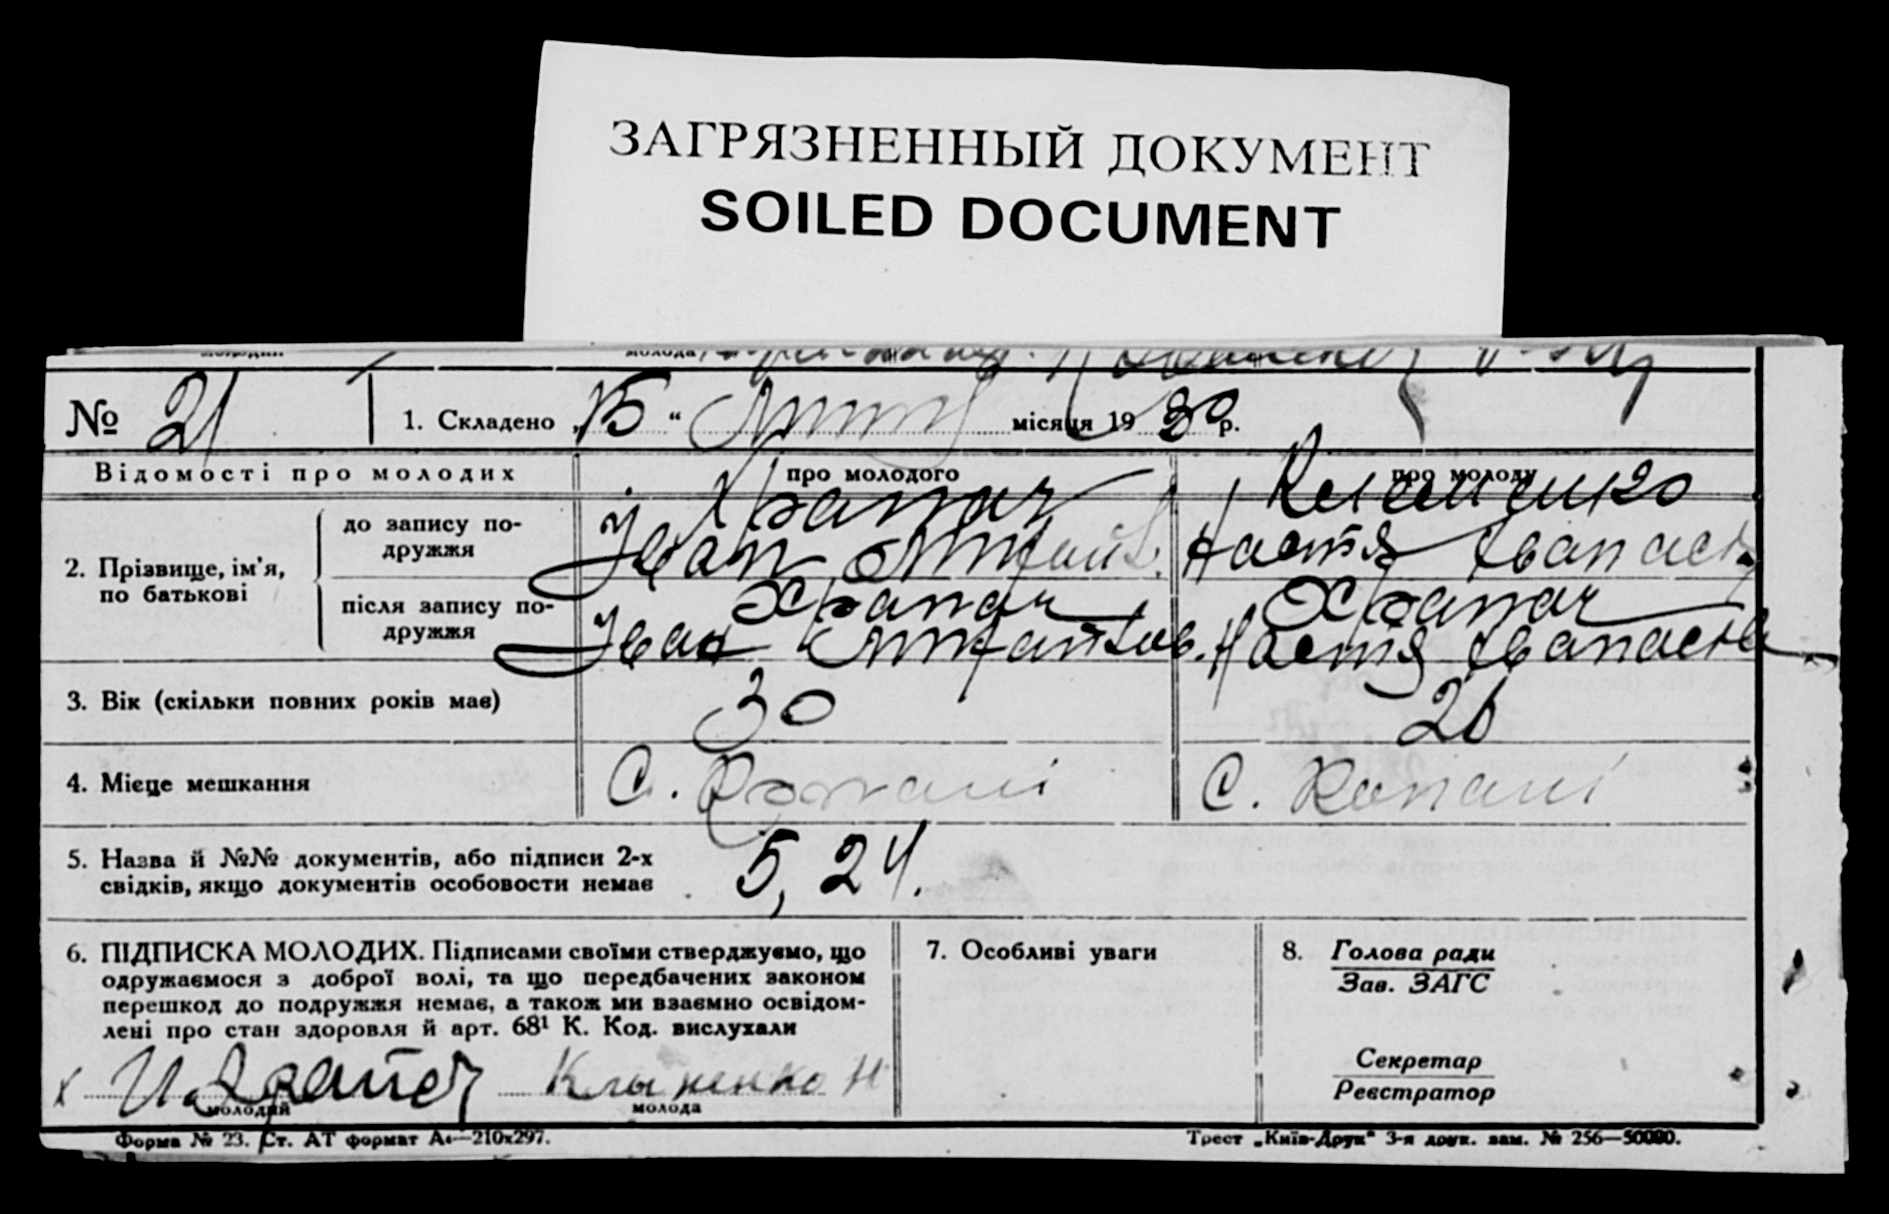 ЗАГРЯЗНЕННЫЙ ДОКУМЕНТ
SOILED DOCUMENT
молодий молода
№ 21 1. Складено „15“ місяця 1930 р.
Відомості про молодих про молодого про молоду
2. Прізвище, ім’я, по батькові
до запису по-
дружжя
Храпач
Іван
Настя
після запису по-
дружжя
Храпач Храпач
Іван Настя
3. Вік (скільки повних років має) 30 26
4. Місце мешкання с. Копані с. Копані
5. Назва й №№ документів, або підписи 2-х
свідків, якщо документів особовости немає 5, 24.
6. ПІДПИСКА МОЛОДИХ. Підписами своїми стверджуємо, що
одружаємося з доброї волі, та що передбачених законом
перешкод до подружжя немає, а також ми взаємно освідом-
лені про стан здоровля й арт. 68¹ К. Код. вислухали
х И. Храпач Клыменко Н
молодий молода
7. Особливі уваги
8. Голова ради
Зав. ЗАГС
Секретар
Реєстратор
Форма № 23. Ст. АТ формат А₄—210х297.
Трест „Київ-Друк“ 3-я друк. зам. № 256—50000.